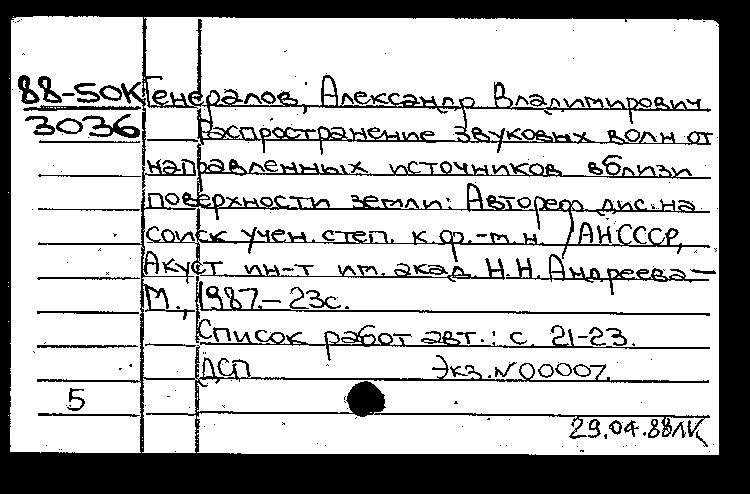 88-50К Генералов, Александр Владимирович
3036 Распространение звуковых волн от
направленных источников вблизи
поверхности земли: Автореф. дис. на
соиск. учен. степ. к.ф.-м.н. /АНСССР,
Акуст. ин-т им. акад. Н.Н. Андреева.—
М., 1987.— 23с.
Список работ авт.: с. 21-23.
ДСП Экз. N 00007.
5
29.04.88